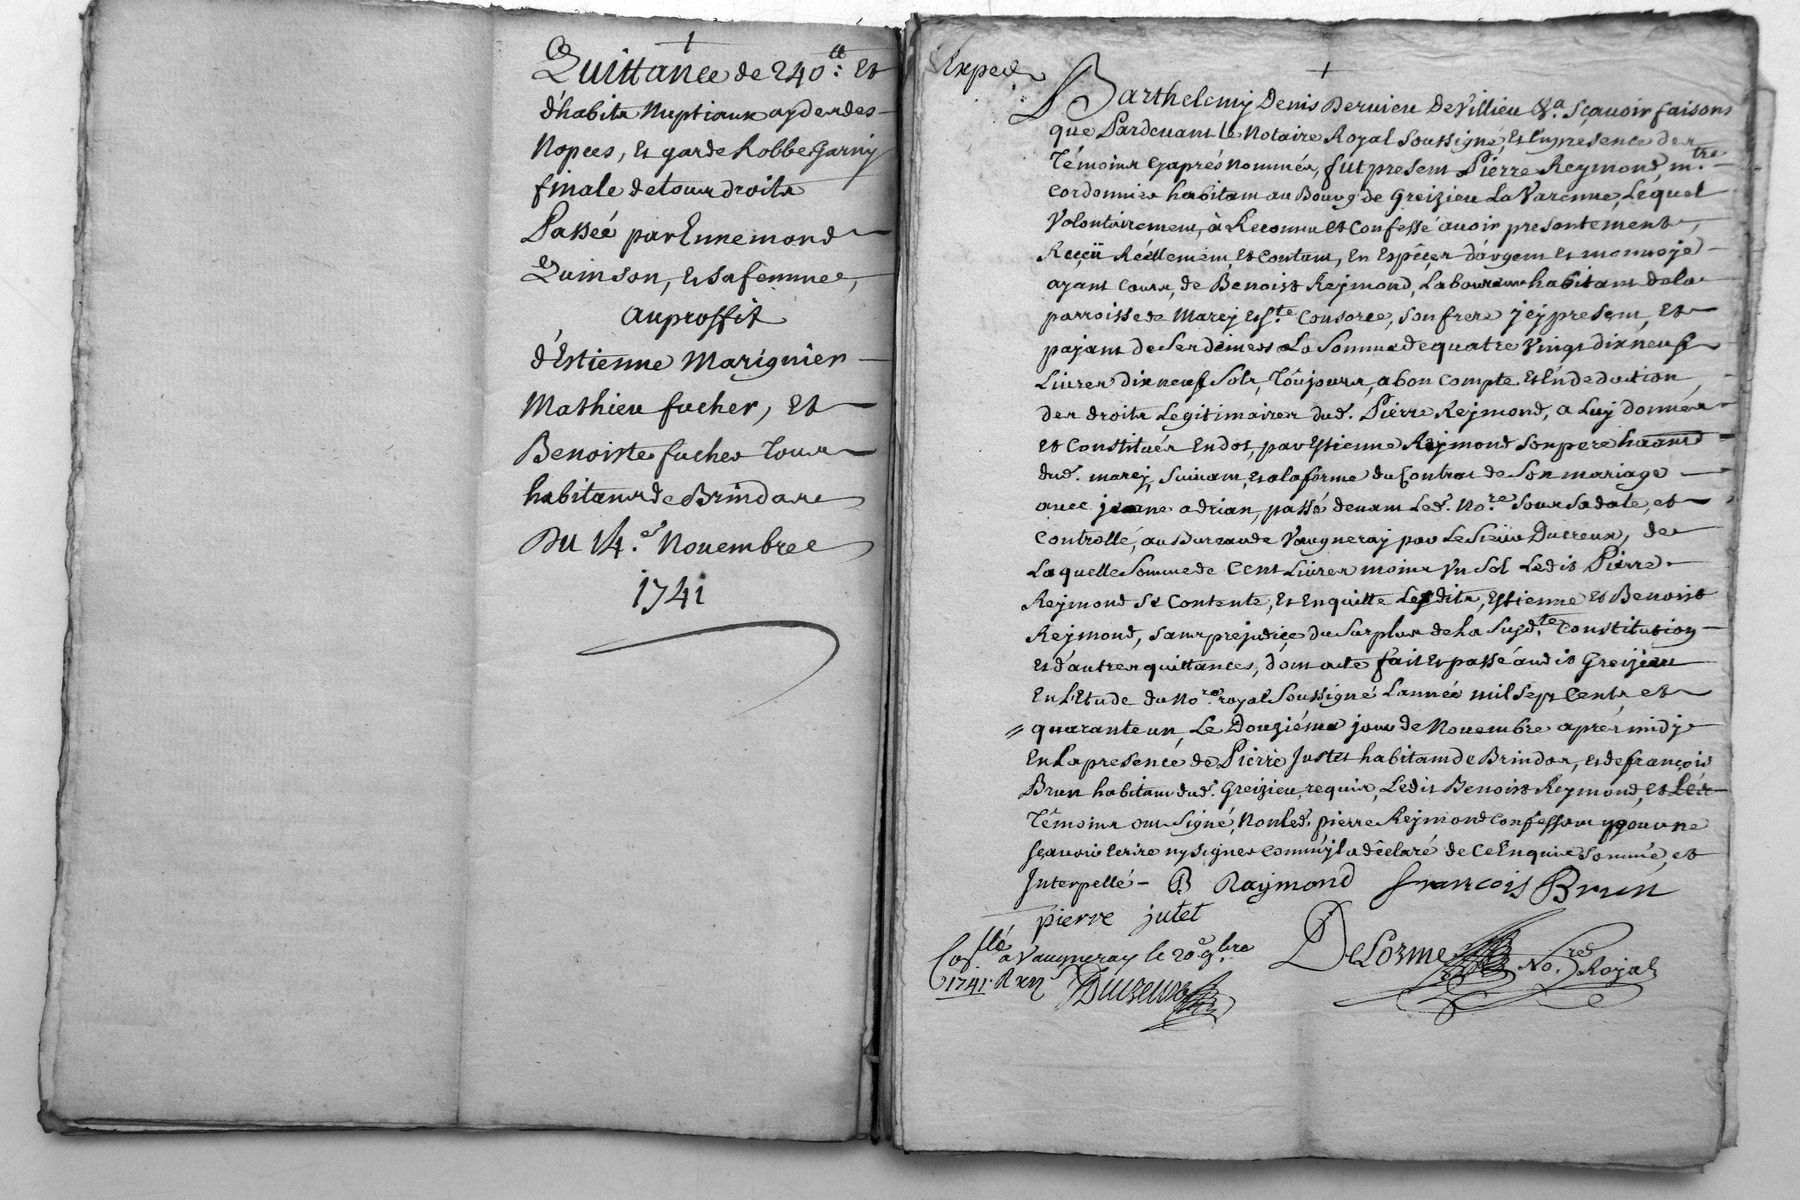 Quittance de 240ᵗᵗ: Et
d'habits Nuptiaux ayde des
Nopces, et garde Robbe Garny
finale de tous droits
Passée par Ennemond
Quinson, et sa femme,
au proffit
d'Estienne Marignier
Mathieu fucher, Et
Benoiste fucher tous
habitans de Brindas
Du 14.e Novembre
1741
Exped
Barthelemy Denis Dervieu De Villieu &a. Scavoir faisons
que Pardevant le Notaire Royal Soussigné, et En presence des
Témoins Cy aprés nommés, fut present Pierre Reymond, m.tre
Cordonnier habitant au Bourg de Greizieu La Varenne, Lequel
Volontairement, à Reconnu et Confessé avoir presentement,
Reçü Réellement, et Contant, En Espêces d'argent et monnoye
ayant Cours, de Benoist Reymond, Laboureur habitant de la
parroisse de Marcy et S.te Consorce, son frere jcy present, Et
payant de Ses deniers La Somme de quatre vingt dix neuf
Livres dix neuf Sols, Toûjours, a bon Compte et En deduction,
des droits Legitimaires dud. Pierre Reymond, a Luy donnés
et Constitués En dot, par Estienne Reymond son pere habitant
dud. marcy, Suivant, et a la forme du Contrat de Son mariage
avec jeanne adrian, passé devant Led. No.re sous sa date, et
Controllé, au Bureau de Vaugneray par Le Sieur Ducreux, de
Laquelle Somme de Cent Livres moins Vn Sol Ledit Pierre
Reymond Se Contente, et En quitte Lesdits, Estienne et Benoist
Reymond, sans prejudice du Surplus de La Susd.te Constitution
et d'autres quittances, dont acte fait et passé audit Greizieu
En L'Etude du No.re royal Soussigné L'année mil Sept Cents et
quarante un, Le Douziéme jour de Novembre aprés midy
En La presence de Pierre Justet habitant de Brindas, et de françois
Brun habitant dud. Greizieu, requis, Ledit Benoist Reymond, et Les
Témoins ont Signé, Non led. pierre Reymond Confessant
sçavoir Ecrire ny signer comm'jl a dêclaré de Ce Enquis Sommé, et
Interpellé - B Raymond françois Brun
pierre jutet
Co.llé a Vaugneray le 20e 9.bre
1741. R xij s Ducreux
DeLorme No.re Royal